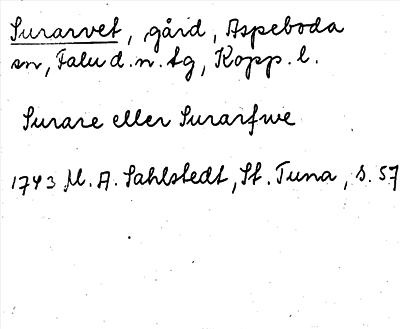 Surarvet, gård, Aspeboda
sn, Falu d.n. tg, Kopp. l.
Surare eller Surarfwe
1743 M. A. Sahlstedt, St. Tuna, s. 57